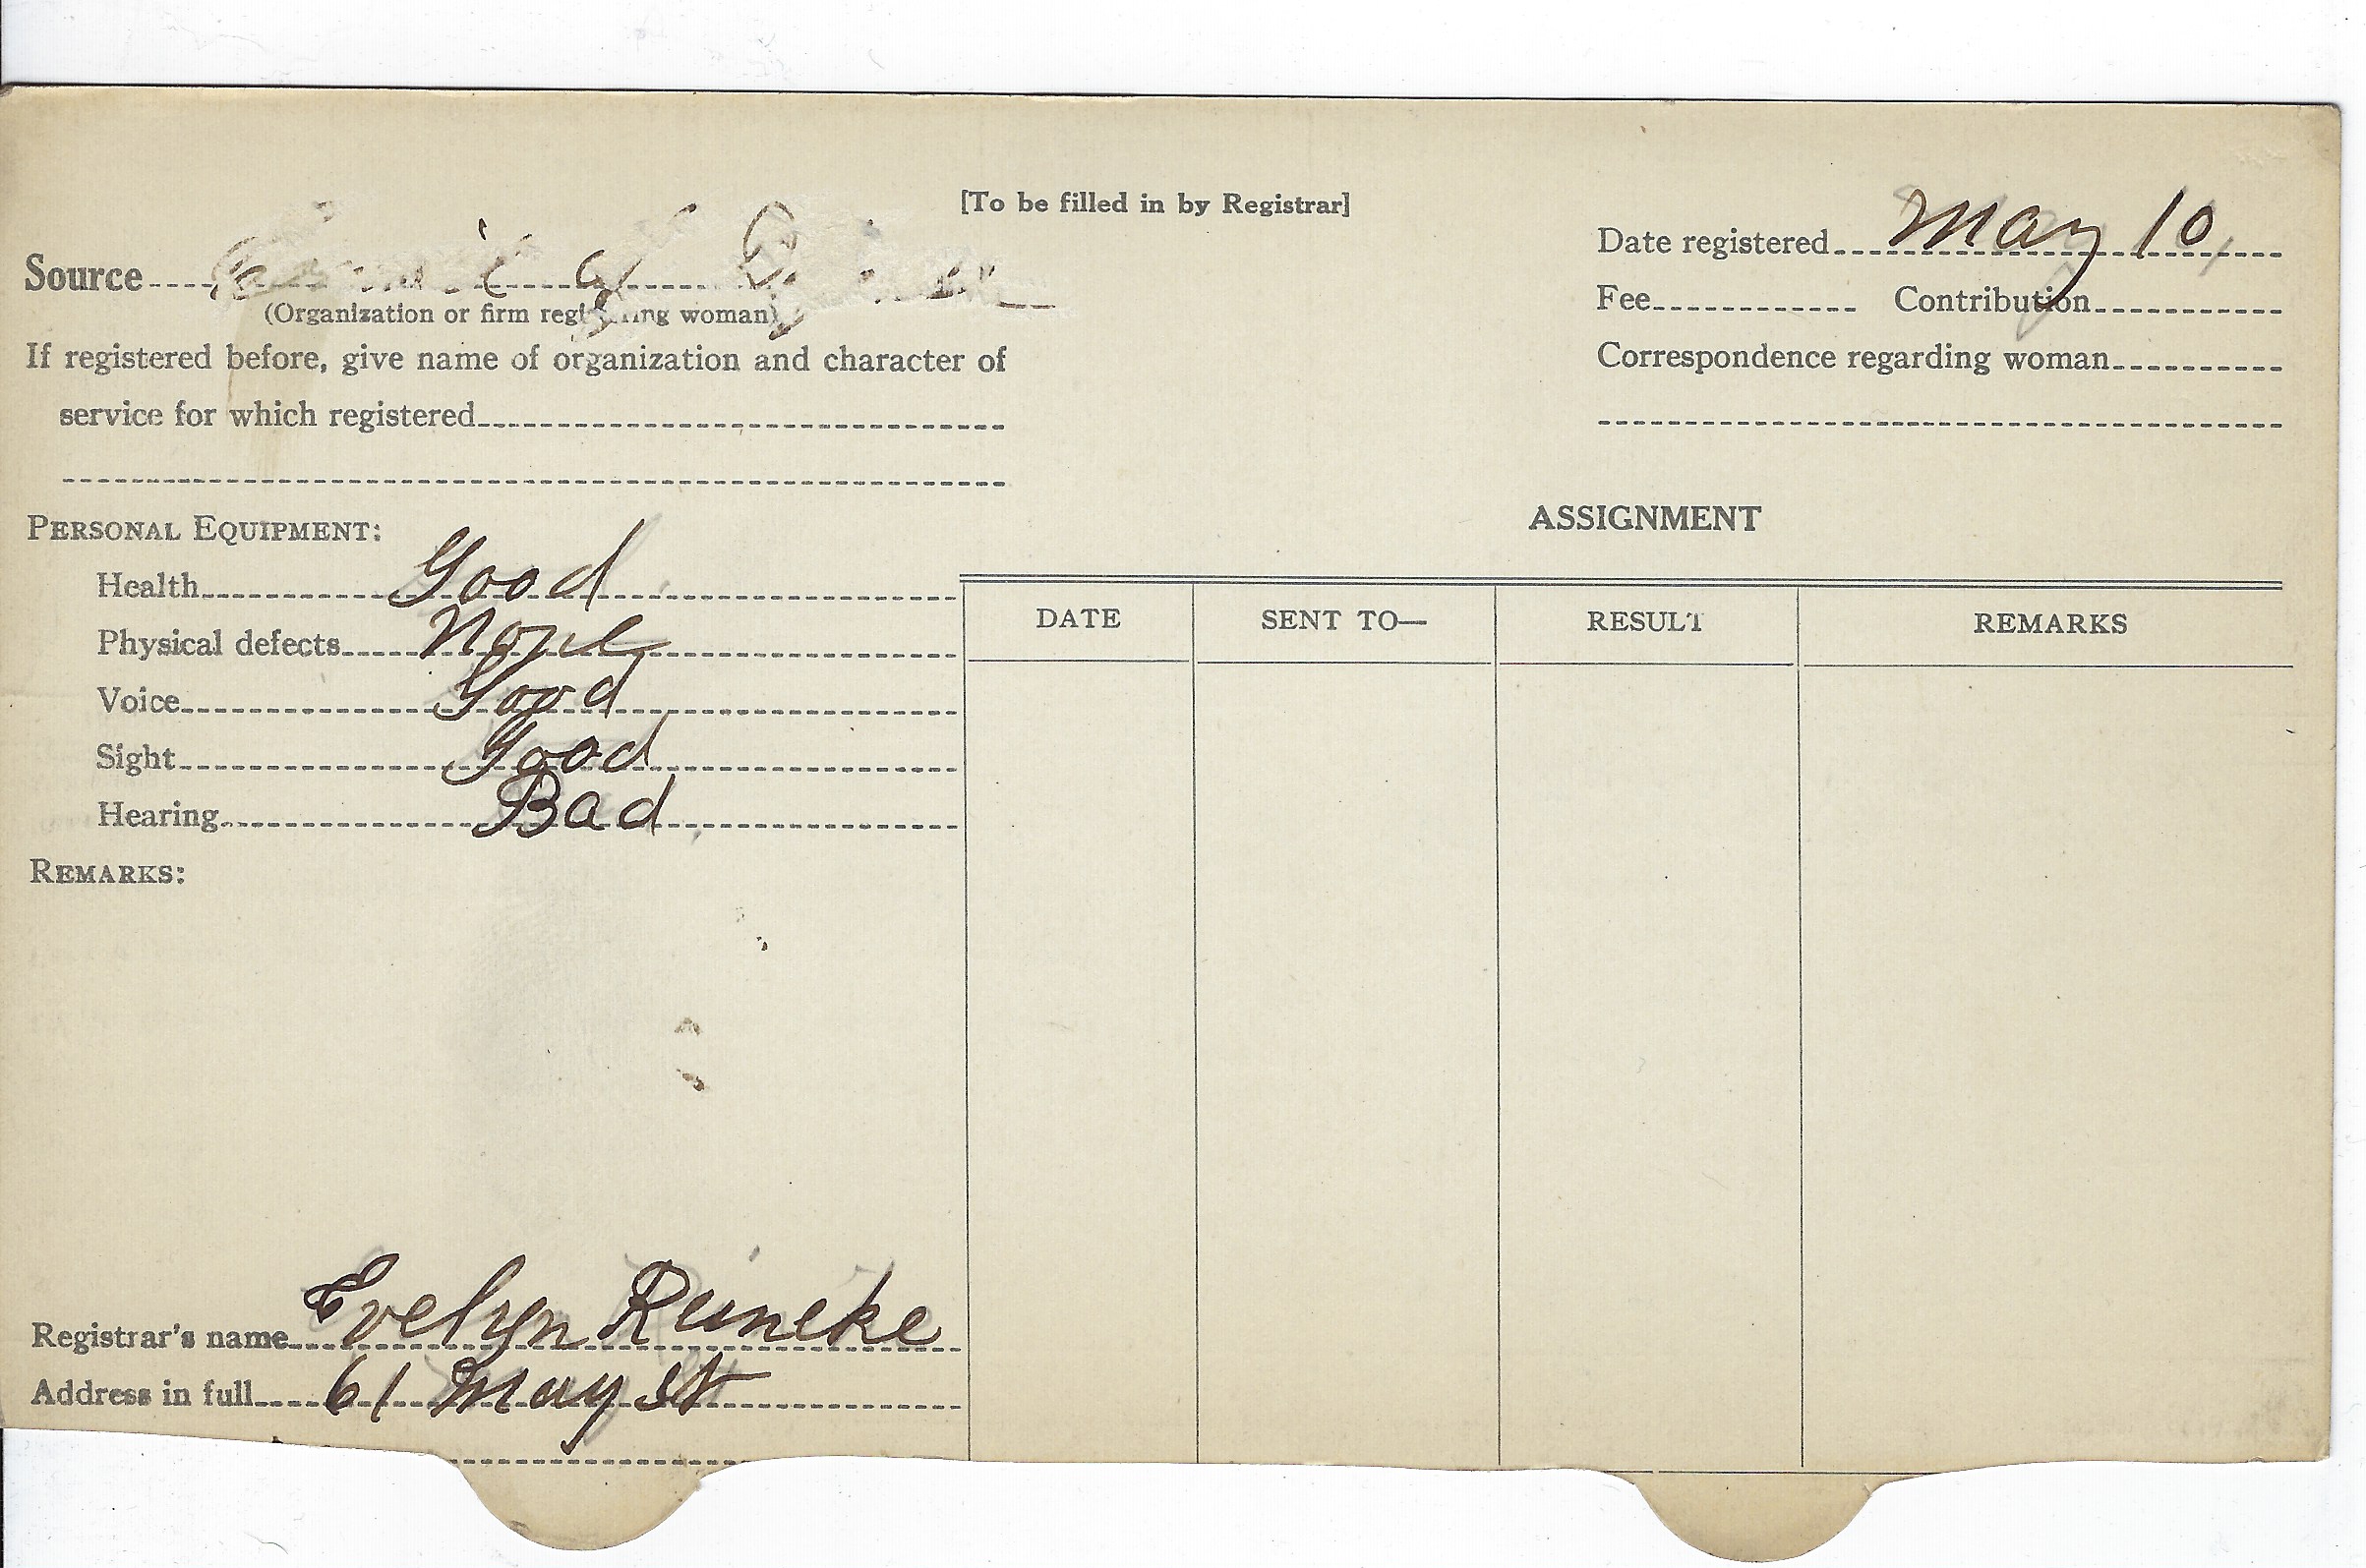 [To be filled in by Registrar]
Source
(Organization or firm registering woman)
If registered before, give name of organization and character of
service for which registered
Date registered May 10,
Fee Contribution
Correspondence regarding woman
PERSONAL EQUIPMENT:
Health Good
Physical defects None
Voice Good
Sight Good
Hearing Bad
REMARKS:
ASSIGNMENT
DATE SENT TO— RESULT REMARKS
Registrar's name Evelyn Reineke
Address in full 61 May St